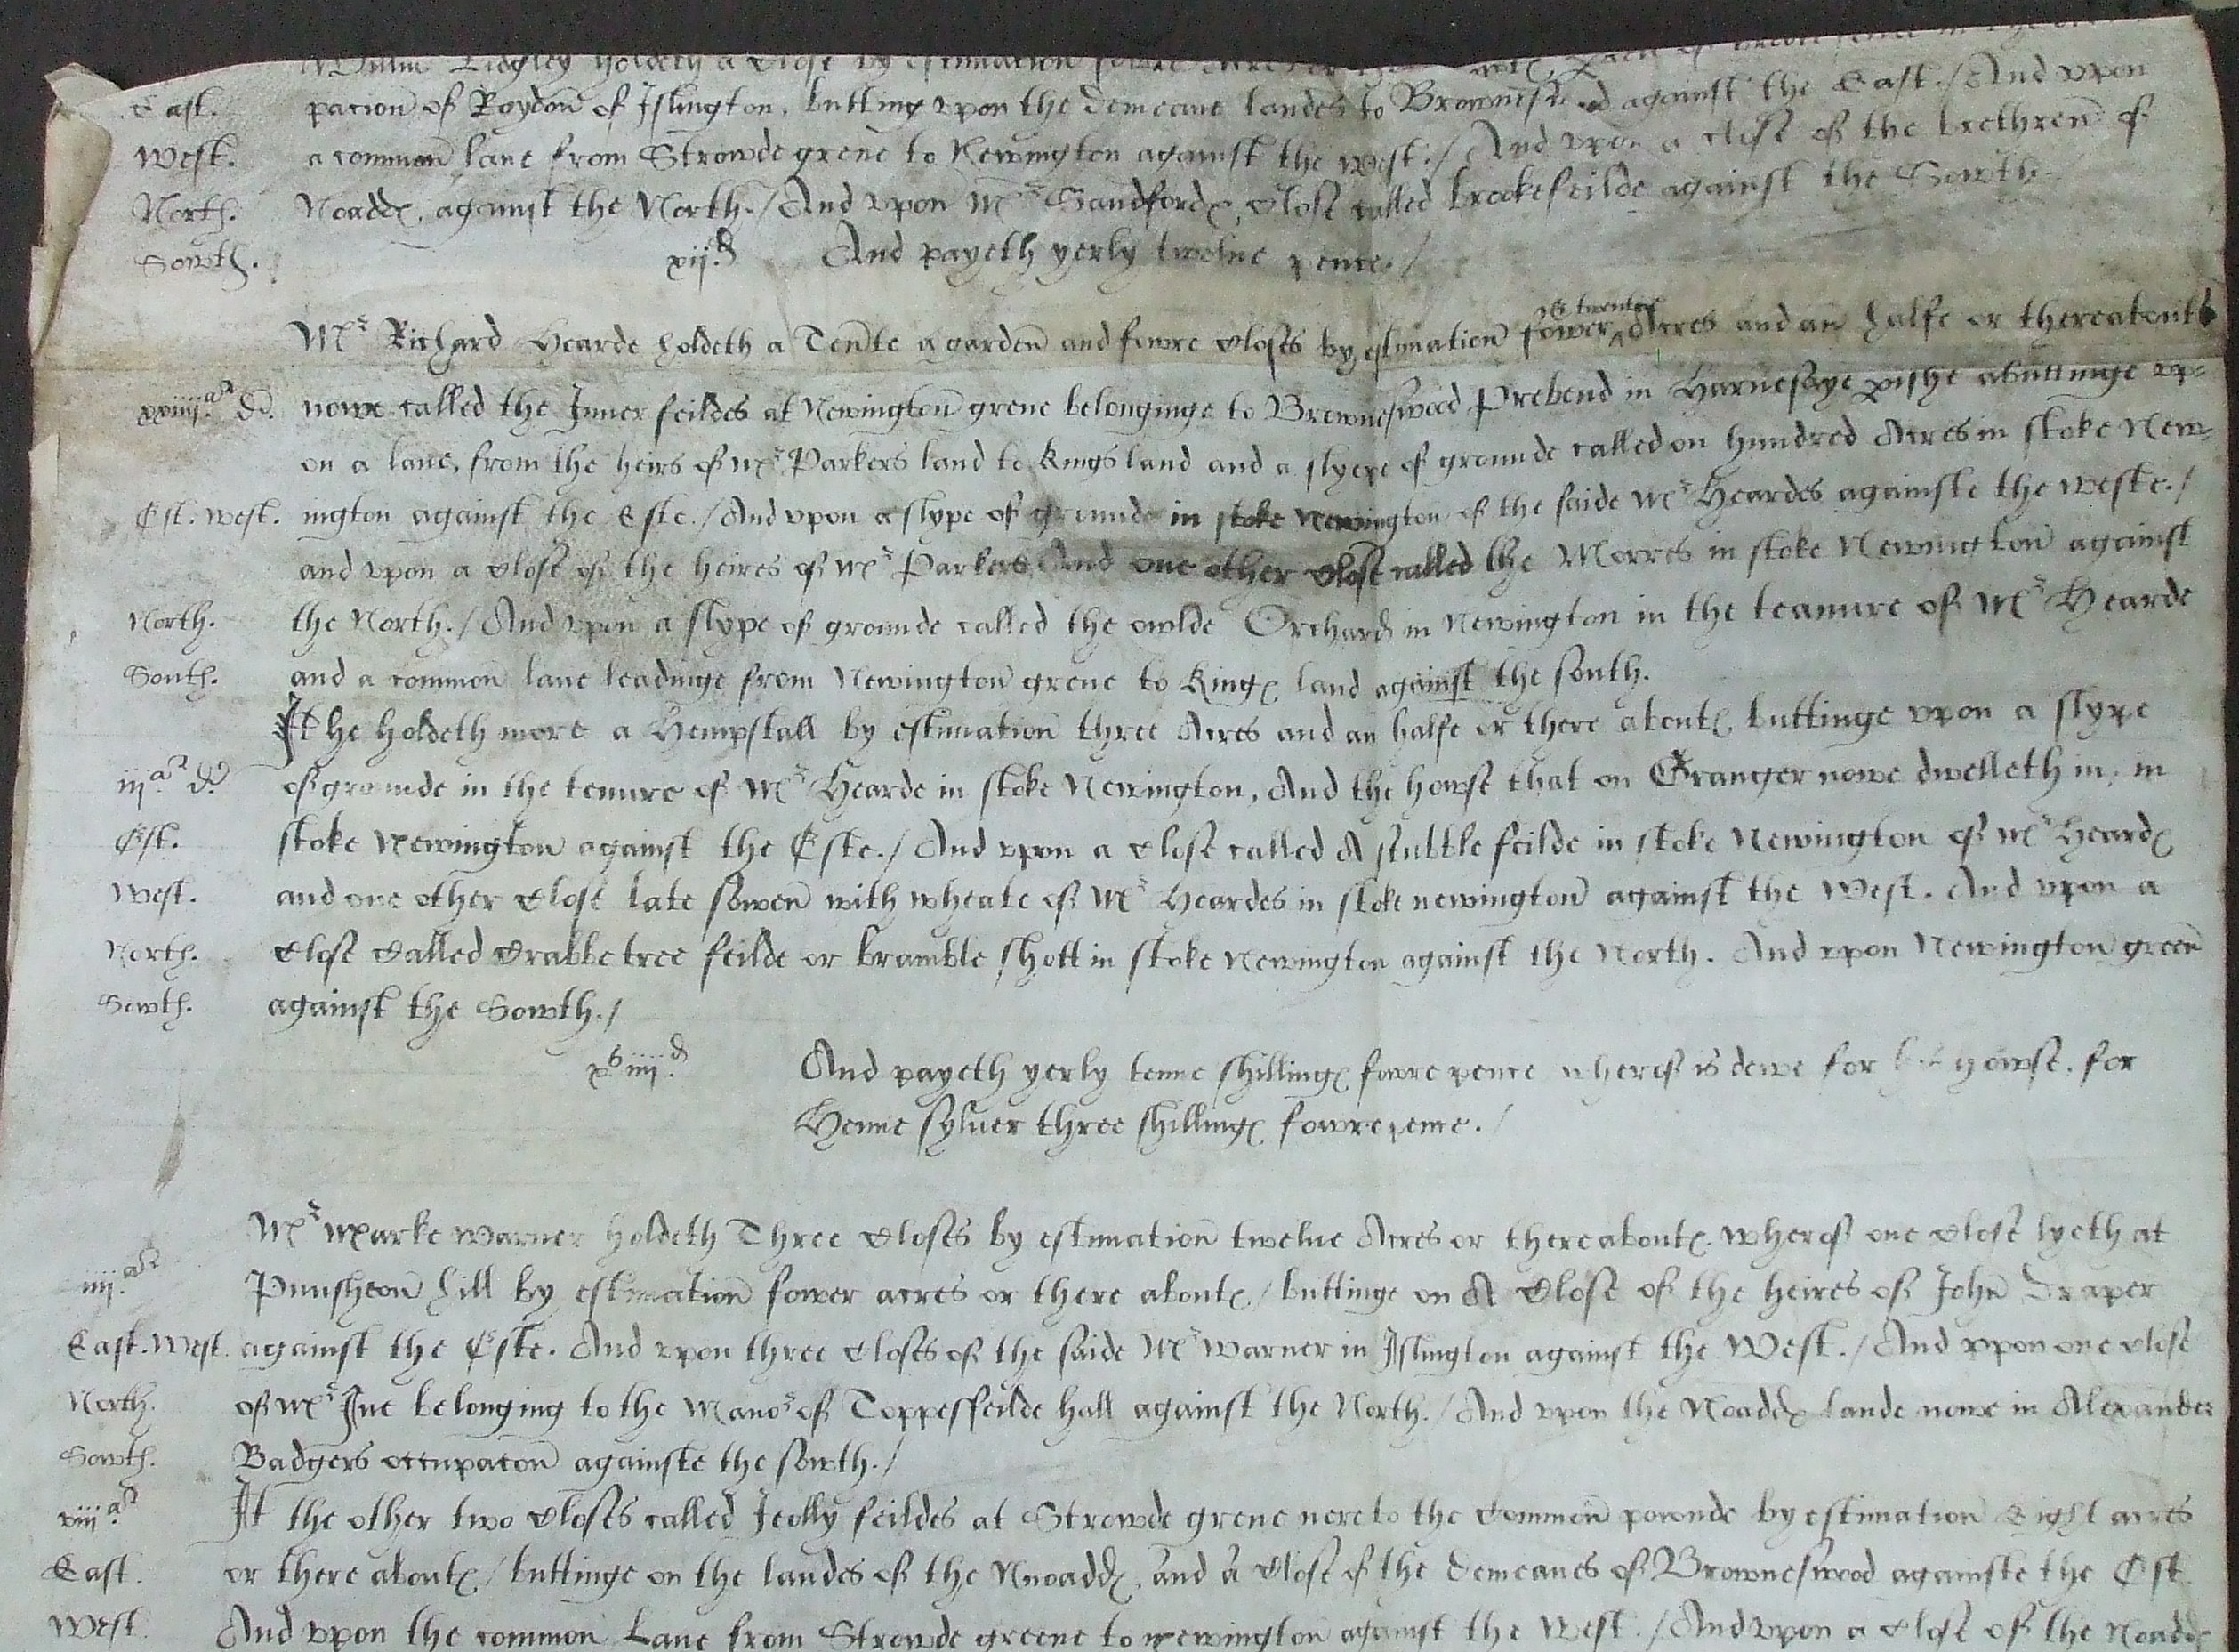 holdeth a Close by estimation
East. pacion of Roydon of Islington, butting upon the demeane landes to Browneswood against the East./ And upon
West. a common lane from Strowde grene to Newington against the west./ And upon a close of the brethren of
North. Noadds, against the North./ And upon Mr Sandfords, Close called brookefeilde against the Sowth
Sowth. xijd And payeth yerly twelve pence./
& twentie
Mr Richard Hearde holdeth a Tente a garden and fowre Closes by estimation fower ^ Acres and an halfe or thereaboute
xxiiij ar di. nowe called the Inner feildes at Newington grene belonginge to Browneswood Prebend in Harnesaye pishe abuttinge up=
on a lane, from the heirs of Mr Parkers land to Kingsland and a slype of grounde called on hundred Acres in stoke New=
Est. West. ington against the Este./ And upon a slype of grounde in stoke Newington of the saide Mr Heardes againste the weste./
and upon a Close of the heires of Mr Parkers And one other Close called the Morres in stoke Newington against
North. the North./ And upon a slype of grounde called the owlde Orchard in Newington in the teanure of Mr Hearde
South. and a common lane leadinge from Newington grene to Kings land against the south.
It he holdeth more a Hempstall by estimation three Acres and an halfe or there abouts buttinge upon a slype
iij ar di of grounde in the tenure of Mr Hearde in stoke Newington, And the howse that on Granger nowe dwelleth in, in
Est. stoke Newington against the Este./ And upon a Close called A stubble feilde in stoke Newington of Mr Heards
West. and one other Close late sowen with wheate of Mr Heardes in stoke newington against the West. And upon a
North. Close Called Crabbe tree feilde or bramble shott in stoke Newington against the North. And upon Newington green
Sowth. against the Sowth./
xs iiijd And payeth yerly tenne shillings fowre pence wherof is dewe for howse, for
Henne sylver three shillings fowre pence./
Mr Marke Warner holdeth Three Closes by estimation twelve Acres or thereabouts wherof one Close lyeth at
iiij ar Punsheon hill by estimation fower acres or there abouts/ buttinge on A Close of the heires of John Draper
East. West. against the Este. And upon three Closes of the saide Mr Warner in Islington against the West./ And uppon one close
North. of Mr Ive belonging to the Manor of Toppesfeilde hall against the North./ And upon the Noadds lande nowe in Alexander
Sowth. Badgers occupacon againste the sowth./
viij ar It the other two Closes called Jeolly feildes at Strowde grene nere to the Common pownde by estimation Eight acres
East. or there abouts/ buttinge on the landes of the Nnoadds, and a Close of the demeanes of Browneswood againste the Est
West And upon the common Lane from Strowde greene to newington against the West./ And upon a Close of the Noadds